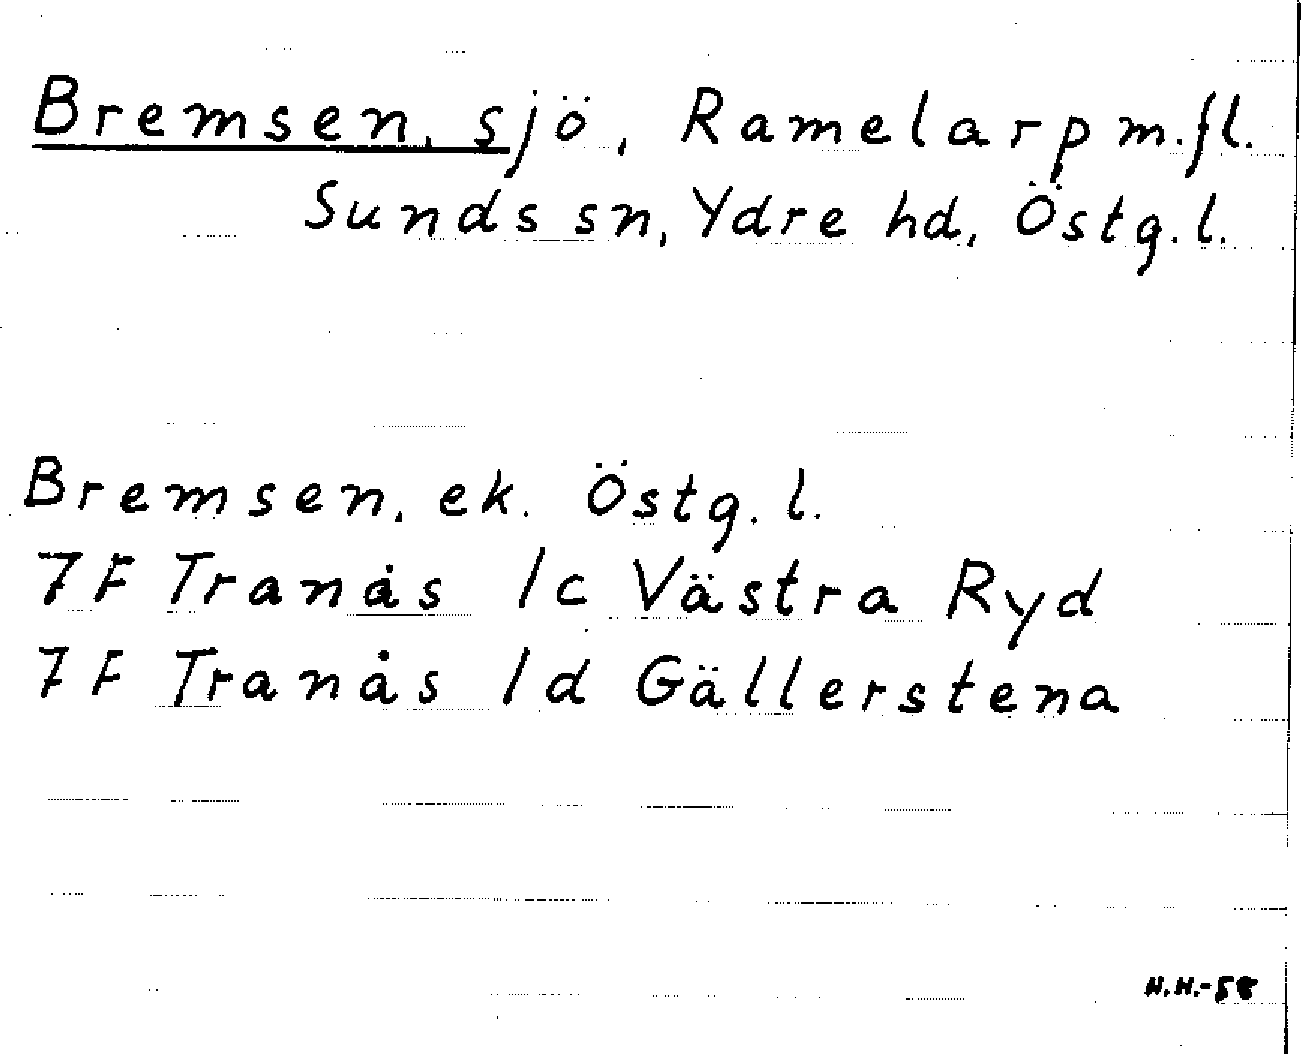 Bremsen, sjö, Ramelarp m.fl.
Sunds sn, Ydre hd, Östg.l.
Bremsen, ek. Östg.l.
7F Tranås 1c Västra Ryd
7F Tranås 1d Gällerstena
H.H.-58